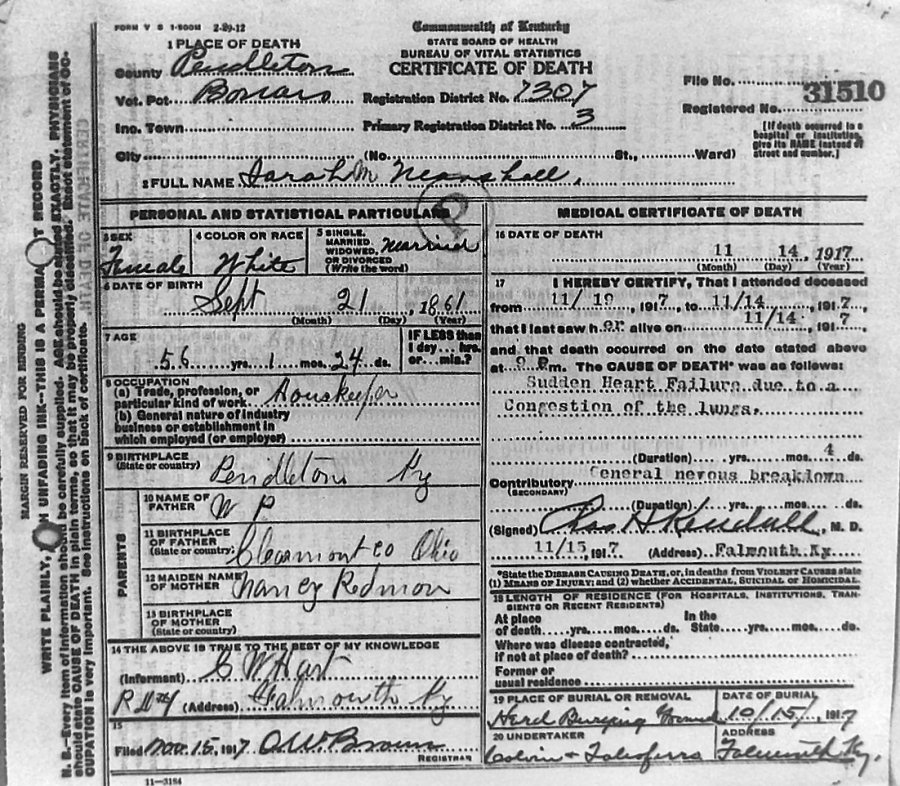 FORM V S 1-500M 2-29-12
Commonwealth of Kentucky
STATE BOARD OF HEALTH
BUREAU OF VITAL STATISTICS
CERTIFICATE OF DEATH
1 PLACE OF DEATH
County Pendleton
Vot. Pct.
Registration District No. 7307
File No.
31510
Registered No.
Inc. Town
Primary Registration District No. 3
[If death occurred in a
hospital or institution,
give its NAME instead of
street and number.]
City (No. St., Ward)
2 FULL NAME Sarah M Marshall,
PERSONAL AND STATISTICAL PARTICULARS
3 SEX
Female
4 COLOR OR RACE
White
5 SINGLE,
MARRIED,
WIDOWED,
OR DIVORCED
(Write the word)
Married
6 DATE OF BIRTH
Sept 21, 1861
(Month) (Day) (Year)
7 AGE
56 yrs. 1 mos. 24 ds.
IF LESS than
1 day... hrs.
or... min.?
8 OCCUPATION
(a) Trade, profession, or
particular kind of work Houskeeper
(b) General nature of industry
business or establishment in
which employed (or employer)
9 BIRTHPLACE
(State or country)
Pendleton Ky
PARENTS
10 NAME OF
FATHER
W P
11 BIRTHPLACE
OF FATHER
(State or country)
Clearmont co Ohio
12 MAIDEN NAME
OF MOTHER
Nancy Redmon
13 BIRTHPLACE
OF MOTHER
(State or country)
14 THE ABOVE IS TRUE TO THE BEST OF MY KNOWLEDGE
(Informant) C W Hart
(Address) Falmouth Ky
15
Filed Nov. 15, 1917 O.W. Brown
REGISTRAR
11-3184
MEDICAL CERTIFICATE OF DEATH
16 DATE OF DEATH
11 14, 1917
(Month) (Day) (Year)
17 I HEREBY CERTIFY, That I attended deceased
from 11/10, 1917, to 11/14, 1917,
that I last saw her alive on 11/14, 1917
and that death occurred on the date stated above
at m. The CAUSE OF DEATH* was as follows:
Sudden Heart Failure due to a
Congestion of the lungs.
(Duration) yrs. mos. 4 ds.
Contributory General nervous breakdown
(SECONDARY)
(Duration) yrs. mos. ds.
(Signed) Chas H Kendall, M. D.
11/15, 1917. (Address) Falmouth Ky.
*State the DISEASE CAUSING DEATH, or, in deaths from VIOLENT CAUSES state
(1) MEANS OF INJURY; and (2) whether ACCIDENTAL, SUICIDAL or HOMICIDAL.
18 LENGTH OF RESIDENCE (FOR HOSPITALS, INSTITUTIONS, TRAN-
SIENTS OR RECENT RESIDENTS)
At place In the
of death yrs. mos. ds. State yrs. mos. ds.
Where was disease contracted,
if not at place of death?
Former or
usual residence
19 PLACE OF BURIAL OR REMOVAL
Burying Ground
DATE OF BURIAL
10/15/, 1917
20 UNDERTAKER
Colvin &
ADDRESS
Falmouth Ky.
MARGIN RESERVED FOR BINDING
WRITE PLAINLY, UNFADING INK—THIS IS A PERMA T RECORD
N. B.—Every item of information should be carefully supplied. AGE should be stated EXACTLY. PHYSICIANS
should state CAUSE OF DEATH in plain terms, so that it may be properly classified. Exact statement of OC-
CUPATION is very important. See instructions on back of certificate.